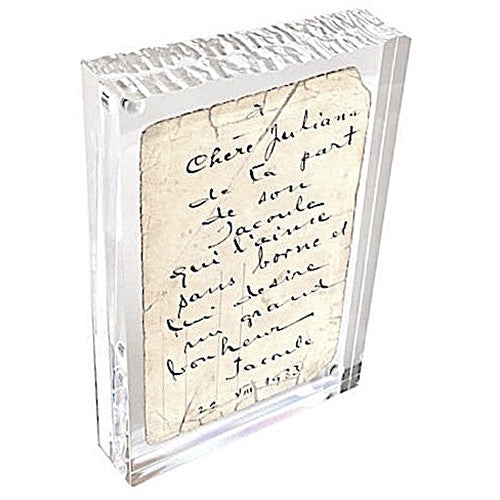 à
Chère Juliana
de la part
de son
Jacoula
qui l'aime
sans borne et
lui desire
un grand
bonheur
Jacoula
22 VIII 1933